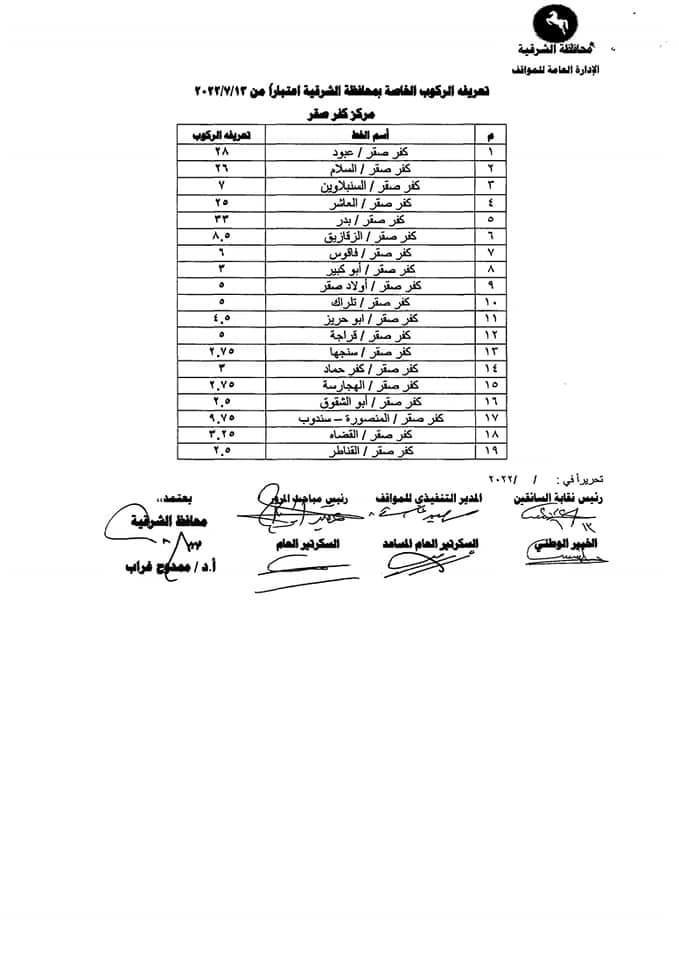 محافظة الشرقية
الإدارة العامة للمواقف
تعريفه الركوب الخاصة بمحافظة الشرقية اعتباراً من ٢٠٢٢/٧/١٣
مركز كفر صقر
م أسم الخط تعريفه الركوب
١ كفر صقر / عبود ٢٨
٢ كفر صقر / السلام ٢٦
٣ كفر صقر / السنبلاوين ٧
٤ كفر صقر / العاشر ٢٥
٥ كفر صقر / بدر ٣٣
٦ كفر صقر / الزقازيق ٨,٥
٧ كفر صقر / فاقوس ٦
٨ كفر صقر / أبو كبير ٣
٩ كفر صقر / أولاد صقر ٥
١٠ كفر صقر / تلراك ٥
١١ كفر صقر / ابو حريز ٤,٥
١٢ كفر صقر / قراجة ٥
١٣ كفر صقر / سنجها ٢,٧٥
١٤ كفر صقر / كفر حماد ٣
١٥ كفر صقر / الهجارسة ٢,٧٥
١٦ كفر صقر / أبو الشقوق ٢,٥
١٧ كفر صقر / المنصورة – سندوب ٩,٧٥
١٨ كفر صقر / القضاه ٣,٢٥
١٩ كفر صقر / القناطر ٢,٥
تحريراً في : / / ٢٠٢٢
رئيس نقابة السائقين المدير التنفيذى للمواقف رئيس مباحث المرور يعتمد،،
محافظ الشرقية
الخبير الوطني السكرتير العام المساعد السكرتير العام
أ.د / ممدوح غراب